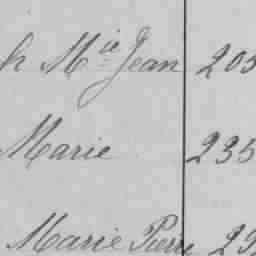 h Mie Jean 205
Marie 235
Marie Pierre 29